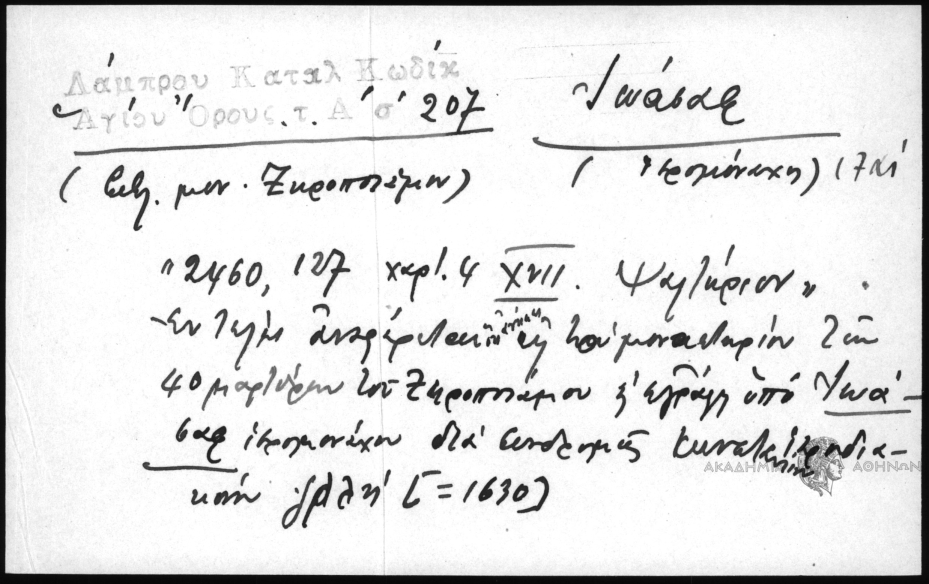 Λάμπρου Καταλ Κωδίκ
Αγίου Όρους τ. Α΄ σ΄ 207
Ἰωάσαφ
(Βιβ. μον. Ξηροποτάμου)
(ἱερομόναχος) 17
"2460, 127 χαρτ. 4 XVII. Ψαλτήριον"
Ἐν τέλει ἀναφέρεται ὅτι εἰς τὴν μοναστηρίου τῶν
40 μαρτύρων τοῦ Ξηροποτάμου ἐγράφη ὑπὸ Ἰωά-
σαφ ἱερομονάχου διὰ συνδρομῆς ἱεροδια-
κόνου ͵ζρλη [= 1630]
ΑΚΑΔΗΜΙΑ ΑΘΗΝΩΝ